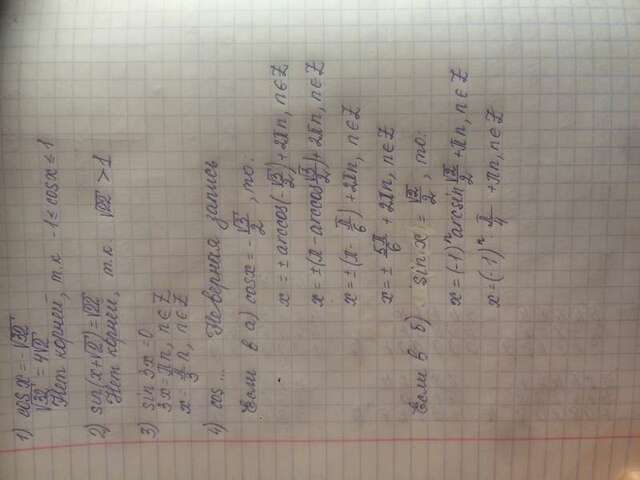 1) cos x = -√32
√32 = 4√2
Нет корней, т.к -1 ≤ cosx ≤ 1
2) sin(x+√2) = √22
Нет корней, т.к. √22 > 1
3) sin 3x = 0
3x = πn, n∈Z
x = π/3 n, n∈Z
4) cos ... Неверная запись
Если в а) cosx = -√3/2, то:
x = ± arccos(-√3/2) + 2πn, n∈Z
x = ±(π - arccos √3/2) + 2πn, n∈Z
x = ±(π - π/6) + 2πn, n∈Z
x = ± 5π/6 + 2πn, n∈Z
Если в б) sin x = √2/2, то:
x = (-1)ⁿ arcsin √2/2 + πn, n∈Z
x = (-1)ⁿ · π/4 + πn, n∈Z